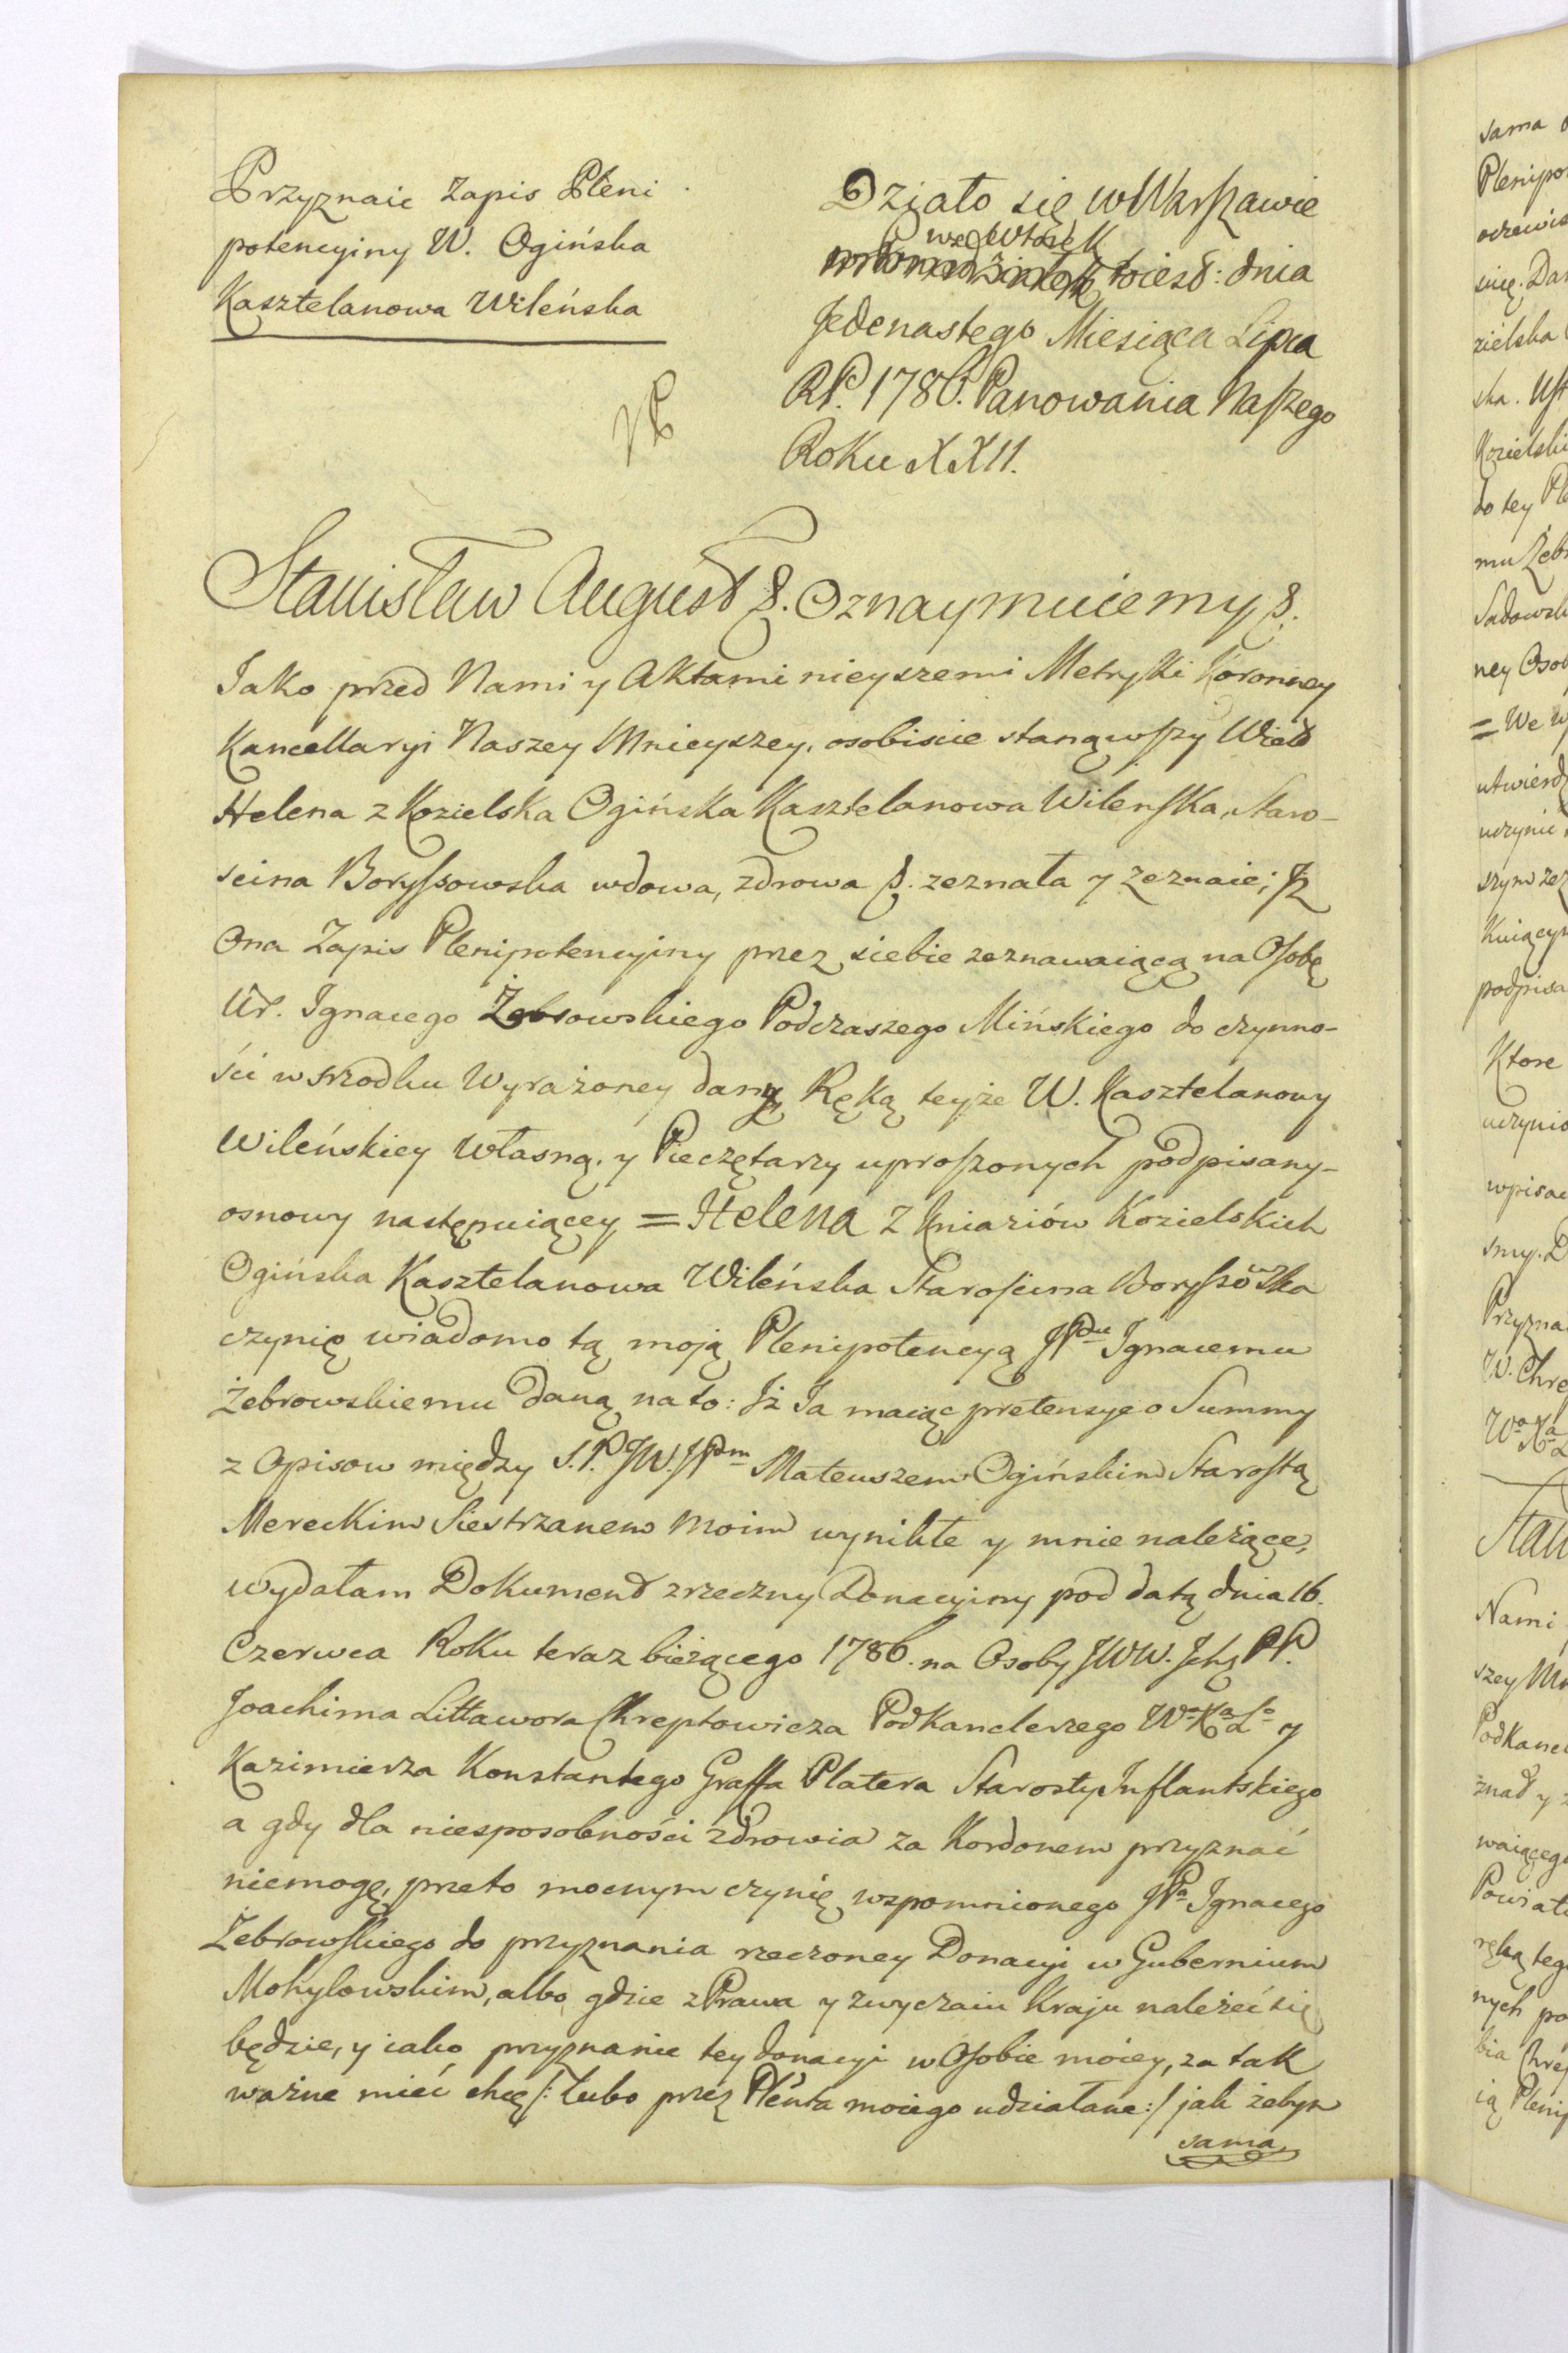 Przyznaie Zapis Pleni
potencyiny W. Ogińska
Kasztelanowa Wileńska
Działo się w Warszawie
we Wtorek
to iest: dnia
Jedenastego Miesiąca Lipca
RP. 1786. Panowania Naszego
Roku XXII.
Stanisław August &. Oznaymuiemy &.
Jako przed Nami y Aktami nieyszemi Metryki Koronney
Kancellaryi Naszey Mnieyszey, osobiscie stanąwszy Wield
Helena z Kozielska Ogińska Kasztelanowa Wilenska, Staro-
scina Boryssowska wdowa, zdrowa &. zeznała y zeznaie; Jż
Ona Zapis Plenipotencyiny przez siebie zeznawaiącą na Osobę
Ur. Ignacego Żebrowskiego Podczaszego Mińskiego do czynno-
ści w srzodku Wyrażoney dany Ręką teyże W. Kasztelanowy
Wileńskiey Własną, y Pieczętarzy uproszonych podpisany-
osnowy następuiącey = Helena z Kniaziów Kozielskich
Ogińska Kasztelanowa Wileńska Staroscina Boryssowska
czynię wiadomo tą moją Plenipotencyą JPdu Ignacemu
Żebrowskiemu daną na to: Jż Ja maiąc pretensye o Summy
z Opisow między S.P. JW. JPdm Mateuszem Ogińskim Starostą
Mereckim Siestrzanem moim wynikłe y mnie należące,
wydałam Dokument zrzeczny Donacyiny pod datą dnia 16.
Czerwca Roku teraz bieżącego 1786. na Osoby JWW. Jchę PP.
Joachima Littawora Chreptowicza Podkanclerzego Wo Ka Lo y
Kazimierza Konstantego Graffa Platera Starosty Inflantskiego
a gdy dla niesposobności zdrowia za Kordonem przyznać
niemogę, przeto mocnym czynię wspomnionego JPa Ignacego
Żebrowskiego do przyznania rzeczoney Donacyi w Gubernium
Mohylowskim, albo gdzie z Prawa y zwyczaiu Kraju należeć się
będzie, y iako przyznanie tey donacyi w Osobie moiey, za tak
ważne mieć chcę /: Lubo przez Plenta moiego udziałane :/ jak żebym
sama